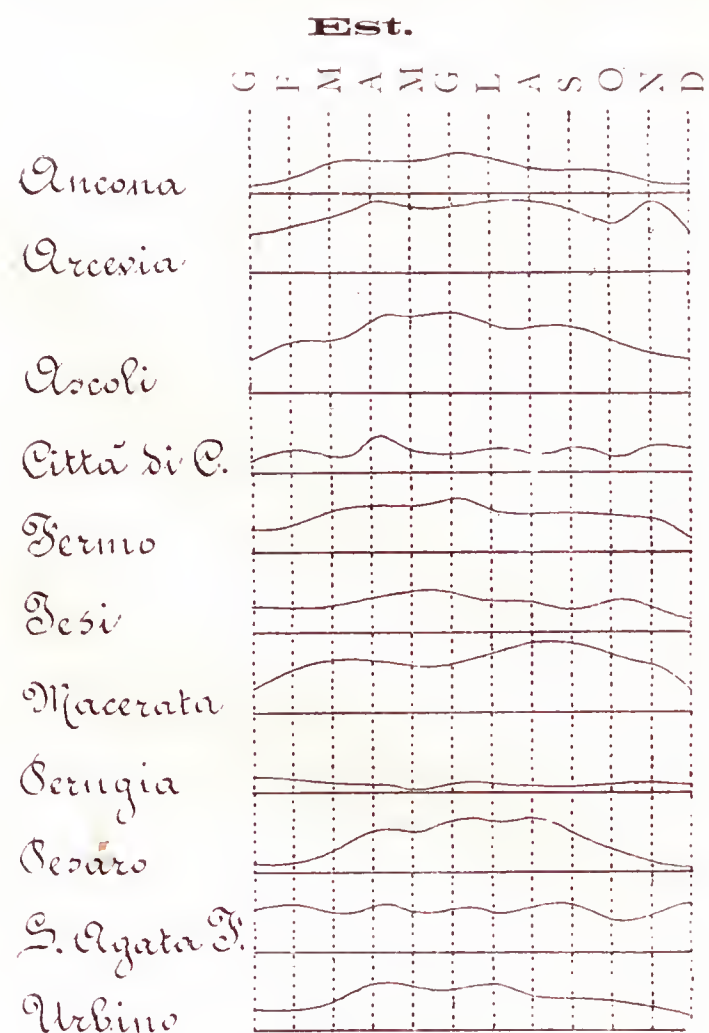 Est.
G F M A M G L A S O N D
Ancona
Arcevia
Ascoli
Città di C.
Fermo
Jesi
Macerata
Perugia
Pesaro
S. Agata F.
Urbino